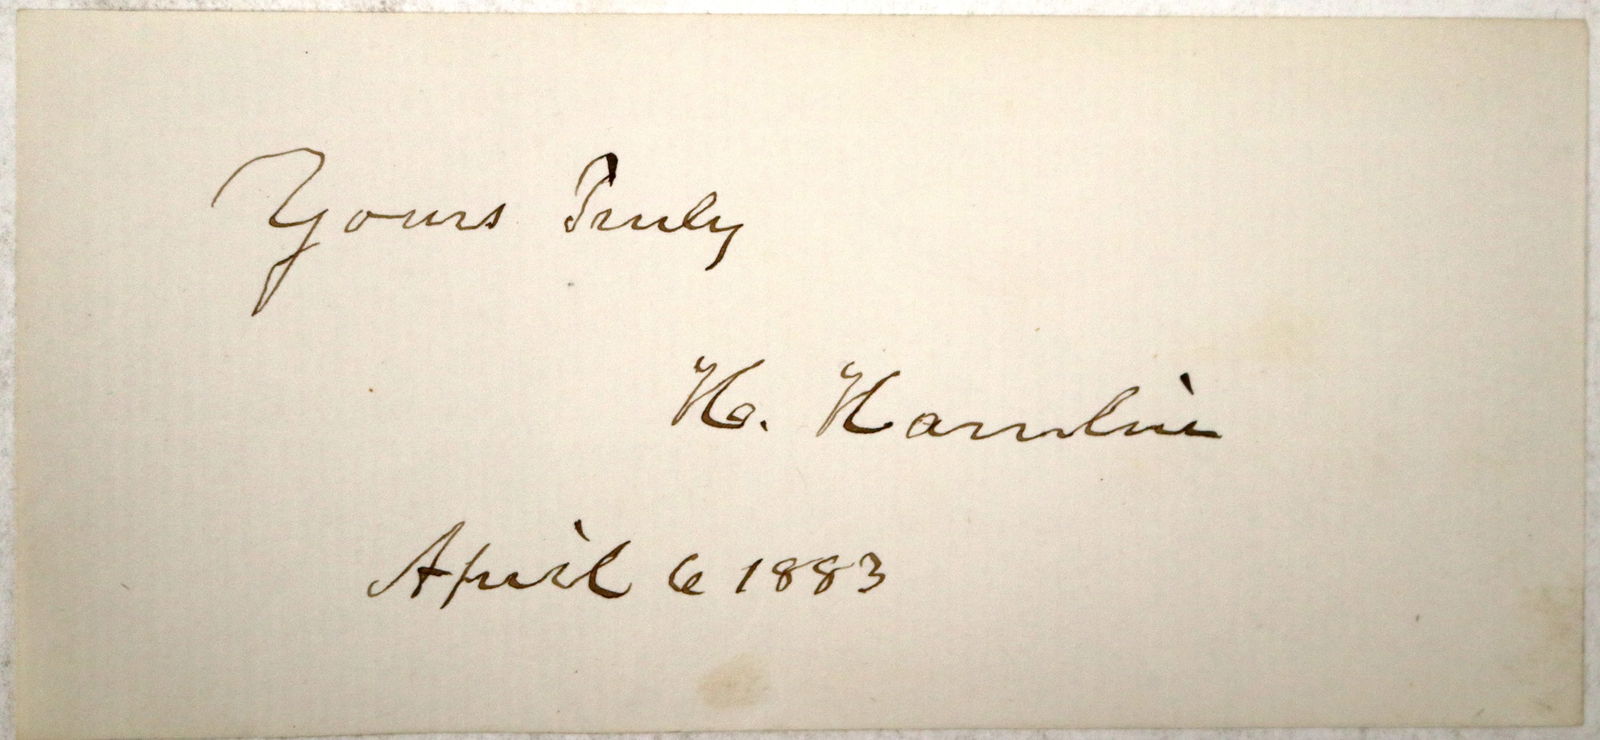 Yours Truly
H. Hamlin
April 6 1883